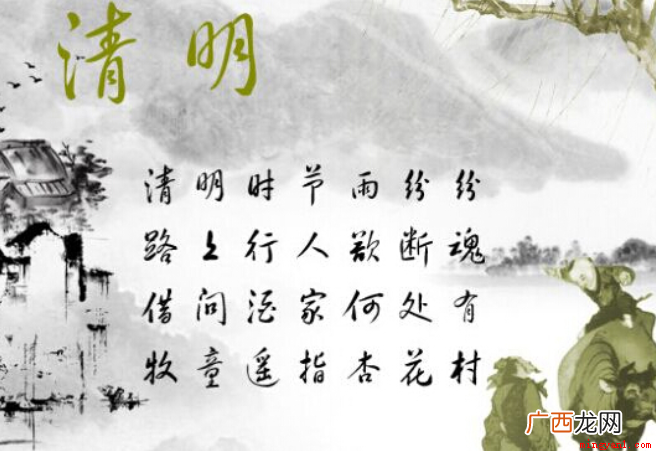 清明
清明时节雨纷纷
路上行人欲断魂
借问酒家何处有
牧童遥指杏花村
广西龙网